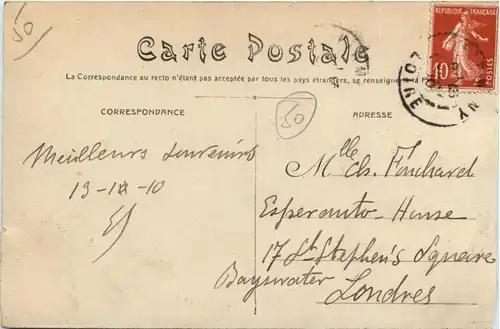 50
Carte Postale
La Correspondance au recto n'étant pas acceptée par tous les pays étrangers, se renseigner à la P
REPUBLIQUE FRANÇAISE
10
POSTES
50
CORRESPONDANCE
ADRESSE
Meilleurs souvenirs
Mlle Ch. Fouchard
Esperanto-House
17 St Stephen's Square
Bayswater
Londres